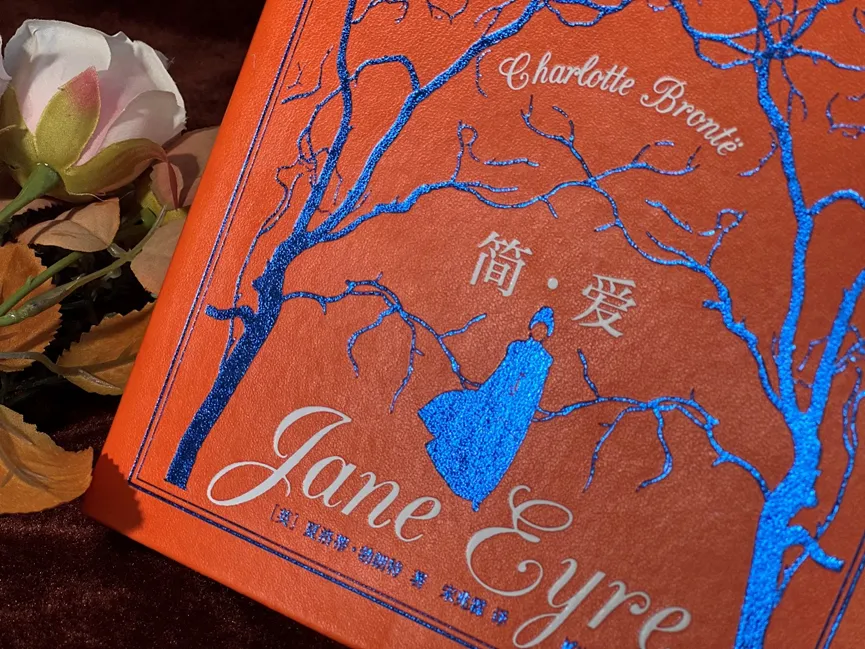 Charlotte Brontë
简·爱
Jane Eyre
[英] 夏洛蒂·勃朗特 著 宋兆霖 译